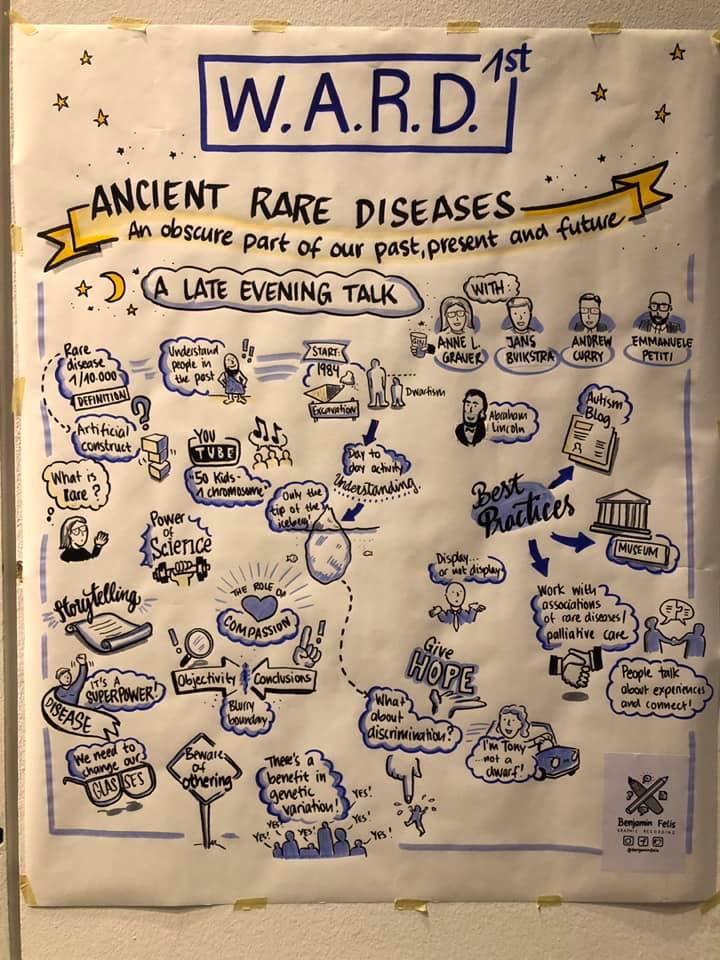 W.A.R.D. 1st
ANCIENT RARE DISEASES
An obscure part of our past, present and future
A LATE EVENING TALK
WITH:
GIN
ANNE L.
GRAUER
JANS
BUIKSTRA
ANDREW
CURRY
EMMANUELE
PETITI
Rare
disease
1/10.000
DEFINITION
Artificial
construct
?
What is
Rare?
Understand
people in
the past
!!
START:
1984
EXCAVATION
Dwarfism
Day to
day activity
Understanding
YOU
TUBE
"50 Kids-
1 chromosome"
Only the
tip of the
iceberg!
Power
of
Science
Abraham
Lincoln
Autism
Blog
Best
Practices
MUSEUM
Display...
or not display
Work with
associations
of rare diseases/
palliative care
People talk
about experiences
and connect!
Storytelling
THE ROLE OF
COMPASSION
IT'S A
SUPERPOWER!
DISEASE
!
!
Objectivity
Conclusions
Blurry
boundary
Give
HOPE
What
about
discrimination?
I'm Tony
...not a
dwarf!
We need to
change our
GLASSES
Beware
of
othering
There's a
benefit in
genetic
variation!
YES!
YES!
YES!
YES!
YES!
YES!
Benjamin Felis
GRAPHIC RECORDING
@benjaminfelis